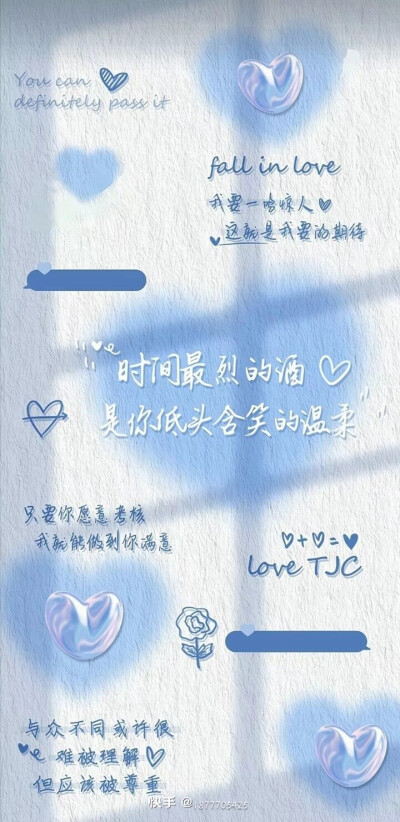 You can
definitely pass it
fall in love
我要一鸣惊人
这就是我要的期待
时间最烈的酒
是你低头含笑的温柔
只要你愿意考核
我就能做到你满意
love TJC
与众不同或许很
难被理解
但应该被尊重
快手 @1877705425